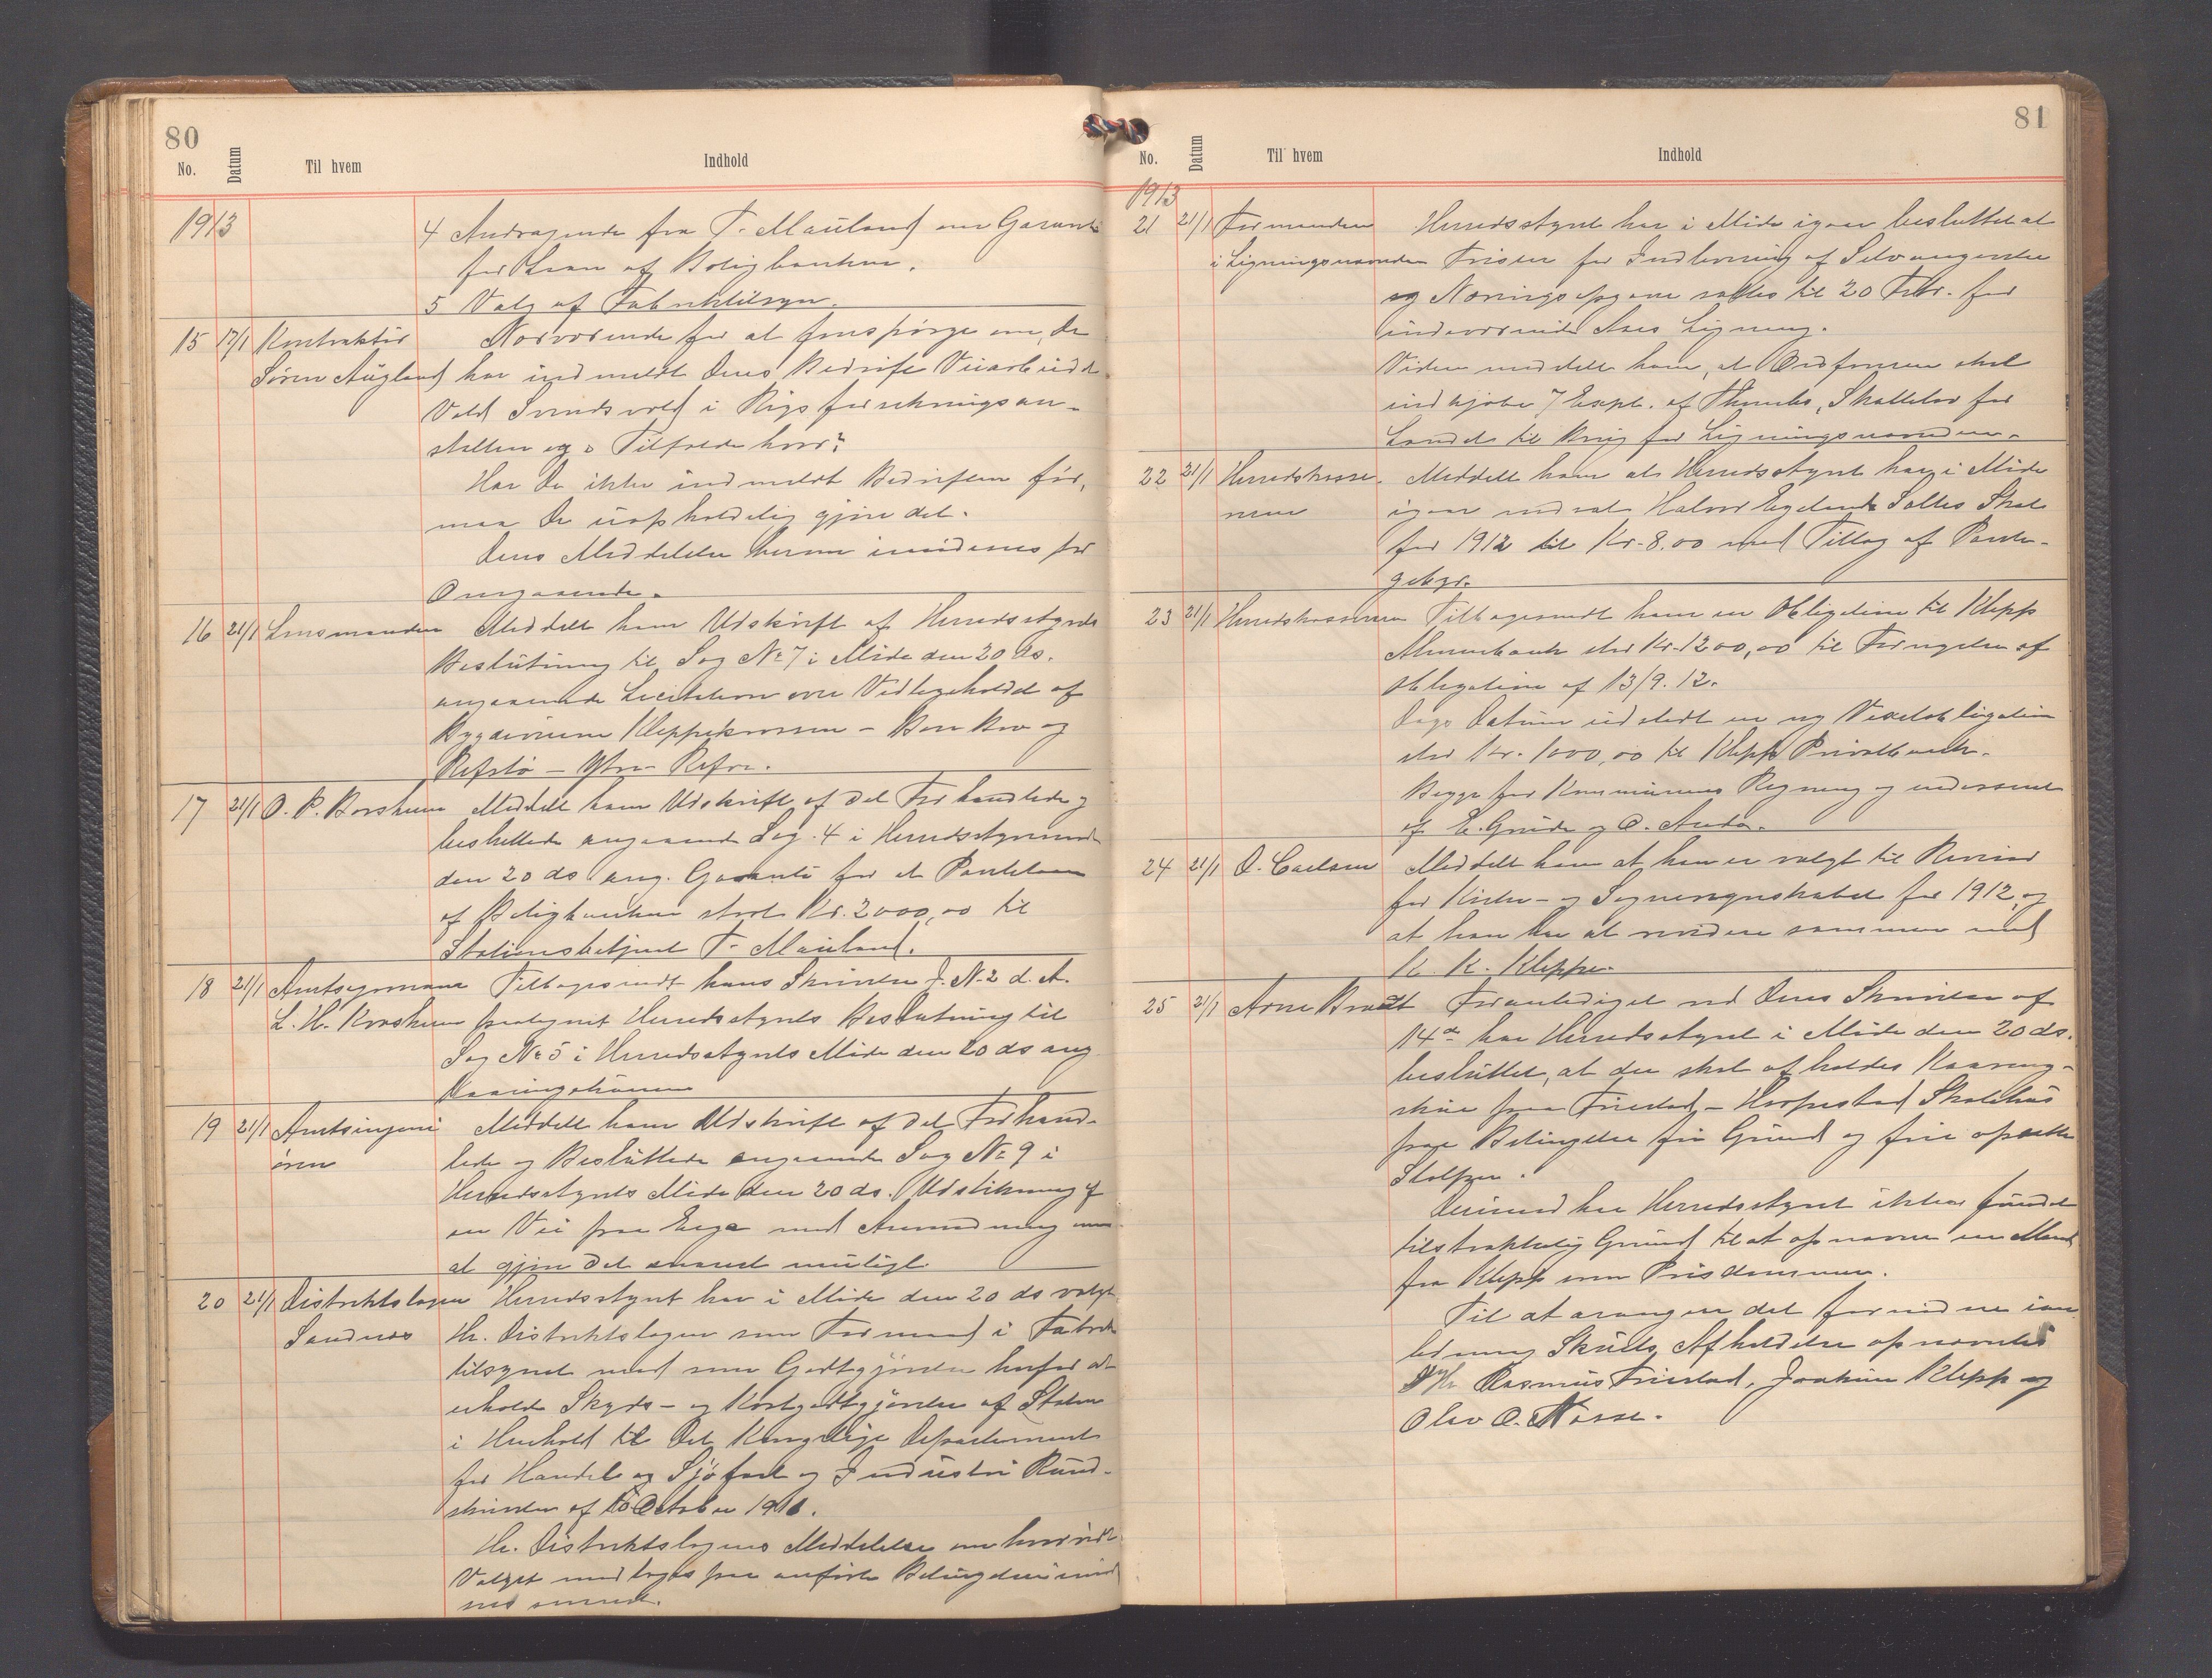 80
No. Datum Til hvem Indhold
1913
4 Andragende fra T. Mauland om Garanti
for Laan af Boligbanken.
5 Valg af Fabriktilsyn.
15 17/1 Kontraktör Nærværende for at forespörge om, De
Sören Augland har indmeldt Deres Bedrift Veiarbeide
Vold Svendsvold i Rigsforsikringsan-
stalten og i Tilfælde hvor?
Har De ikke indmeldt Bedriften för,
maa De uopholdelig gjöre det.
Deres Meddelelse herom imödesees pr
Omgaaende.
16 21/1 Lensmanden Meddelt ham Udskrift af Herredsstyrets
Beslutning til Sag No 7 i Möde den 20 ds.
angaaende Licitation over Vedligeholdet af
Bygdeveiene Kleppekrossen - Bore Bro og
Refstö - Ytre Refsn.
17 21/1 O. P. Borsheim Meddelt ham Udskrift af det Forhandlede og
besluttede angaaende Sag 4 i Herredsstyremöde
den 20 ds ang. Garanti for et Pantelaan
af Boligbanken stort Kr. 2000,00 til
Stationsbetjent T. Mauland.
18 21/1 Amtsagronom Tilbagesendt hans Skrivelse J. N. 2 d. A.
L. H. Korsheim paategnet Herredsstyrets Beslutning til
Sag No 5 i Herredsstyrets Möde den 20 ds ang
Kaaringskommi
19 21/1 Amtsingeni Meddelt ham Udskrift af det Forhand-
ören lede og Besluttede angaaende Sag No 9 i
Herredsstyrets Möde den 20 ds. Udstikning af
en Vei fra Ege med Anmodning om
at gjöre det snarest muligt.
20 21/1 Distriktslægen Herredsstyret har i Möde den 20 ds valgt
Sandnæs Hr. Distriktslægen som Formand i Fabrik
tilsynet med som Godtgjörelse herfor at
erholde Skyds- og Kostgodtgjörelse af Staten
i Henhold til Det Kongelige Departement
for Handel og Sjöfart og Industri Rund-
skrivelse af 10 October 1910.
Hr. Distriktslægens Meddelelse om hvorvidt
Valget modtages paa anförte Betingelser imöde
sees snarest.
81
No. Datum Til hvem Indhold
1913
21 21/1 Formanden Herredsstyret har i Möde igaar besluttet at
i Ligningsnævnden Fristen for Indlevering af Selvangivelse
og Næringsopgave sættes til 20 Febr. for
indeværende Aars Ligning.
Videre meddelt ham, at Ordföreren skal
indkjöbe 7 Expl. af Thomles, Skattelov for
Landet til Brug for Ligningsnævnden.
22 21/1 Herredskasse- Meddelt ham at Herredsstyret har i Möde
reren igaar nedsat Halvor Egelands Saltes Skat
for 1912 til Kr. 8.00 med Tillæg af Pante-
gebyr.
23 21/1 Herredskassereren Tilbagesendt ham en Obligation til Klepp
Almuebank stor Kr. 1200,00 til Fornyelse af
Obligation af 13/9. 12.
Dags Datum udstedt en ny Vexelobligation
stor Kr. 1000,00 til Klepp Privatbank.
Begge for Kommunens Regning og underskrevet
af E. Grude og O. Anda.
24 21/1 O. Carlsen Meddelt ham at han er valgt til Revisor
for Kirke- og Sogneregnskabet for 1912, og
at han har at revidere sammen med
K. K. Kleppe.
25 21/1 Arne Bradt Foranlediget ved Deres Skrivelse af
14de har Herredsstyret i Möde den 20 ds.
besluttet, at der skal afholdes Kaarings-
skue paa Friestad - Horpestad Skolehus
paa Betingelse fri Grund og frie opsatte
Stolper.
Derimod har Herredsstyret ikke fundet
tilstrækkelig Grund til at opnævne en Mand
fra Klepp som Prisdommer.
Til at arangere det fornödne i an
ledning Skuets Afholdelse opnævntes
D'Hr Rasmus Friestad, Joakim Klepp og
Olav O. Næsse.